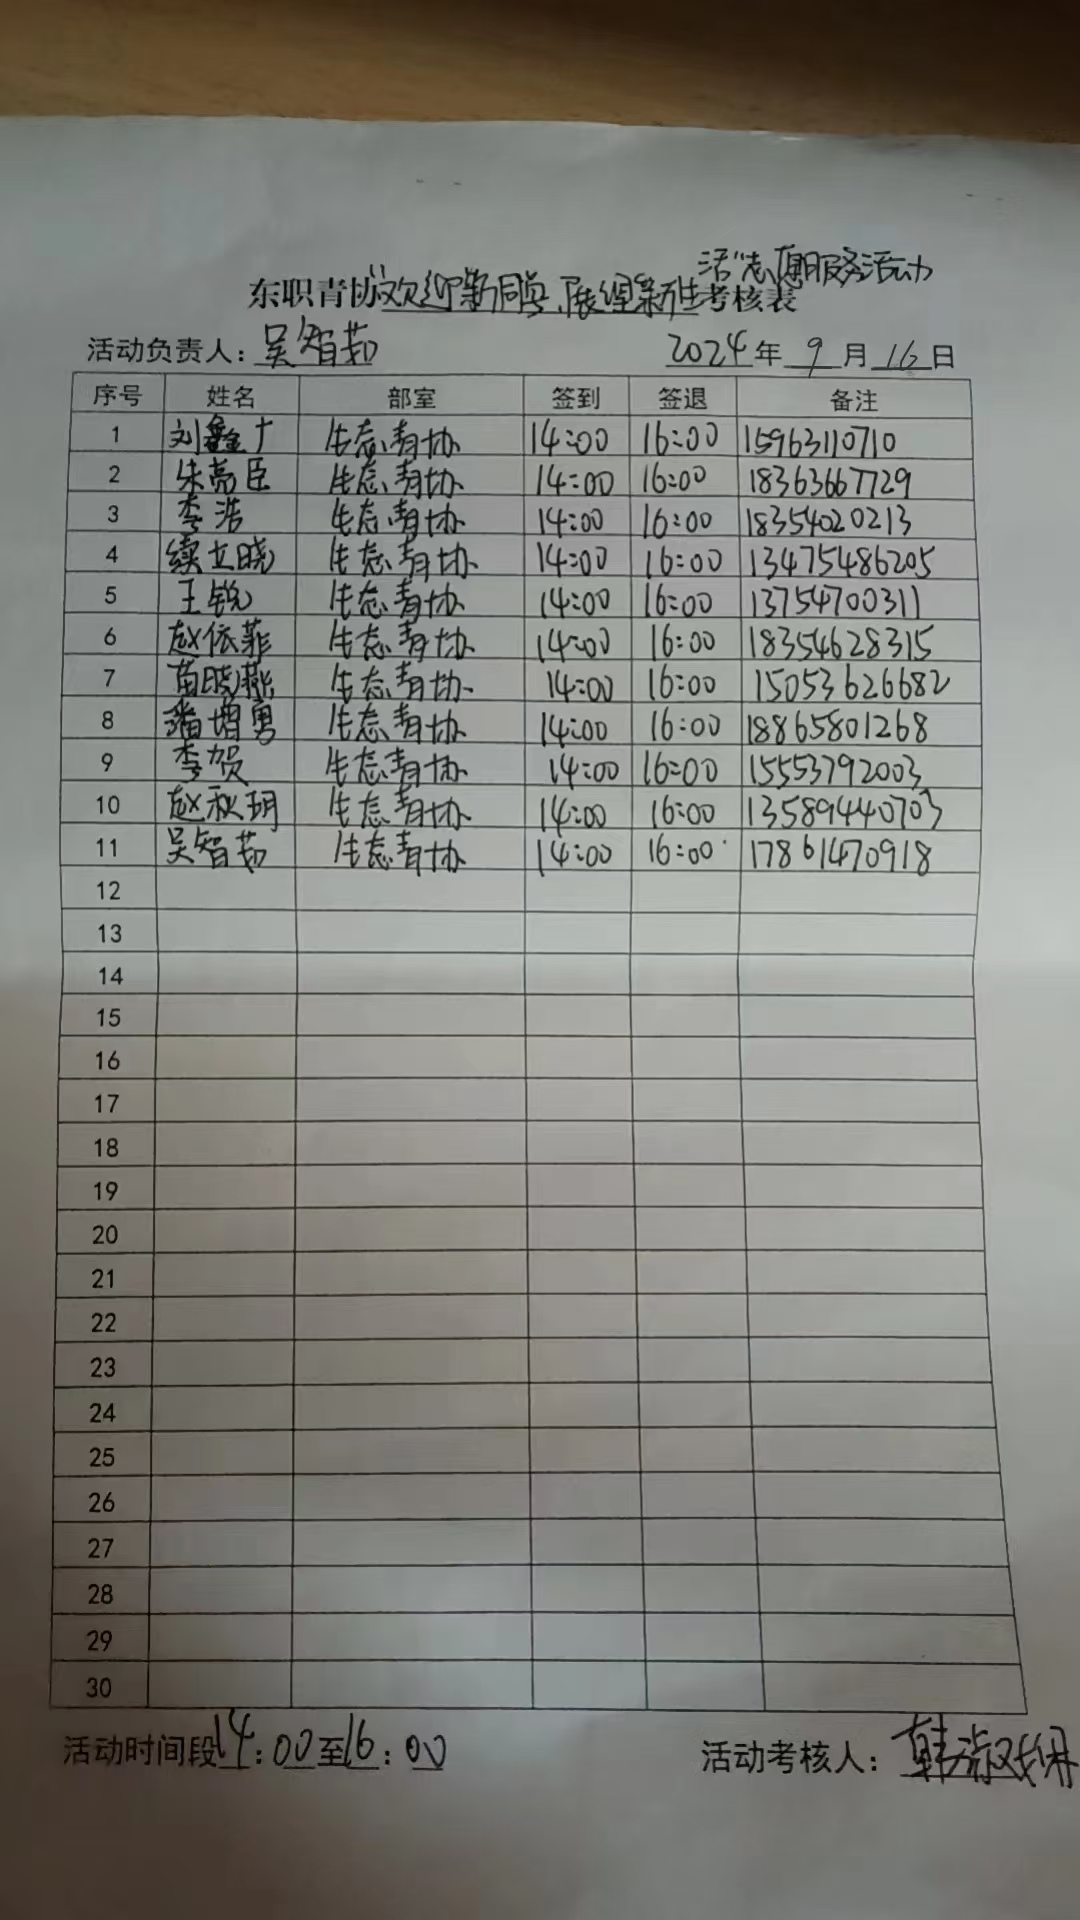 活"志愿服务活动
东职青协"欢迎新同学,展望新生考核表
活动负责人: 吴智茹 2024 年 9 月 16 日
序号 姓名 部室 签到 签退 备注
1 刘鑫广 生态青协 14:00 16:00 15963110710
2 朱亮臣 生态青协 14:00 16:00 18363667729
3 李浩 生态青协 14:00 16:00 18354020213
4 续立晓 生态青协 14:00 16:00 13475486205
5 王锐 生态青协 14:00 16:00 13754700311
6 赵依菲 生态青协 14:00 16:00 18354628315
7 苗晓燕 生态青协 14:00 16:00 15053626682
8 潘增勇 生态青协 14:00 16:00 18865801268
9 李贺 生态青协 14:00 16:00 15553792003
10 赵秋玥 生态青协 14:00 16:00 13589440703
11 吴智茹 生态青协 14:00 16:00 17861470918
12
13
14
15
16
17
18
19
20
21
22
23
24
25
26
27
28
29
30
活动时间段14:00至16:00 活动考核人: 韩淑